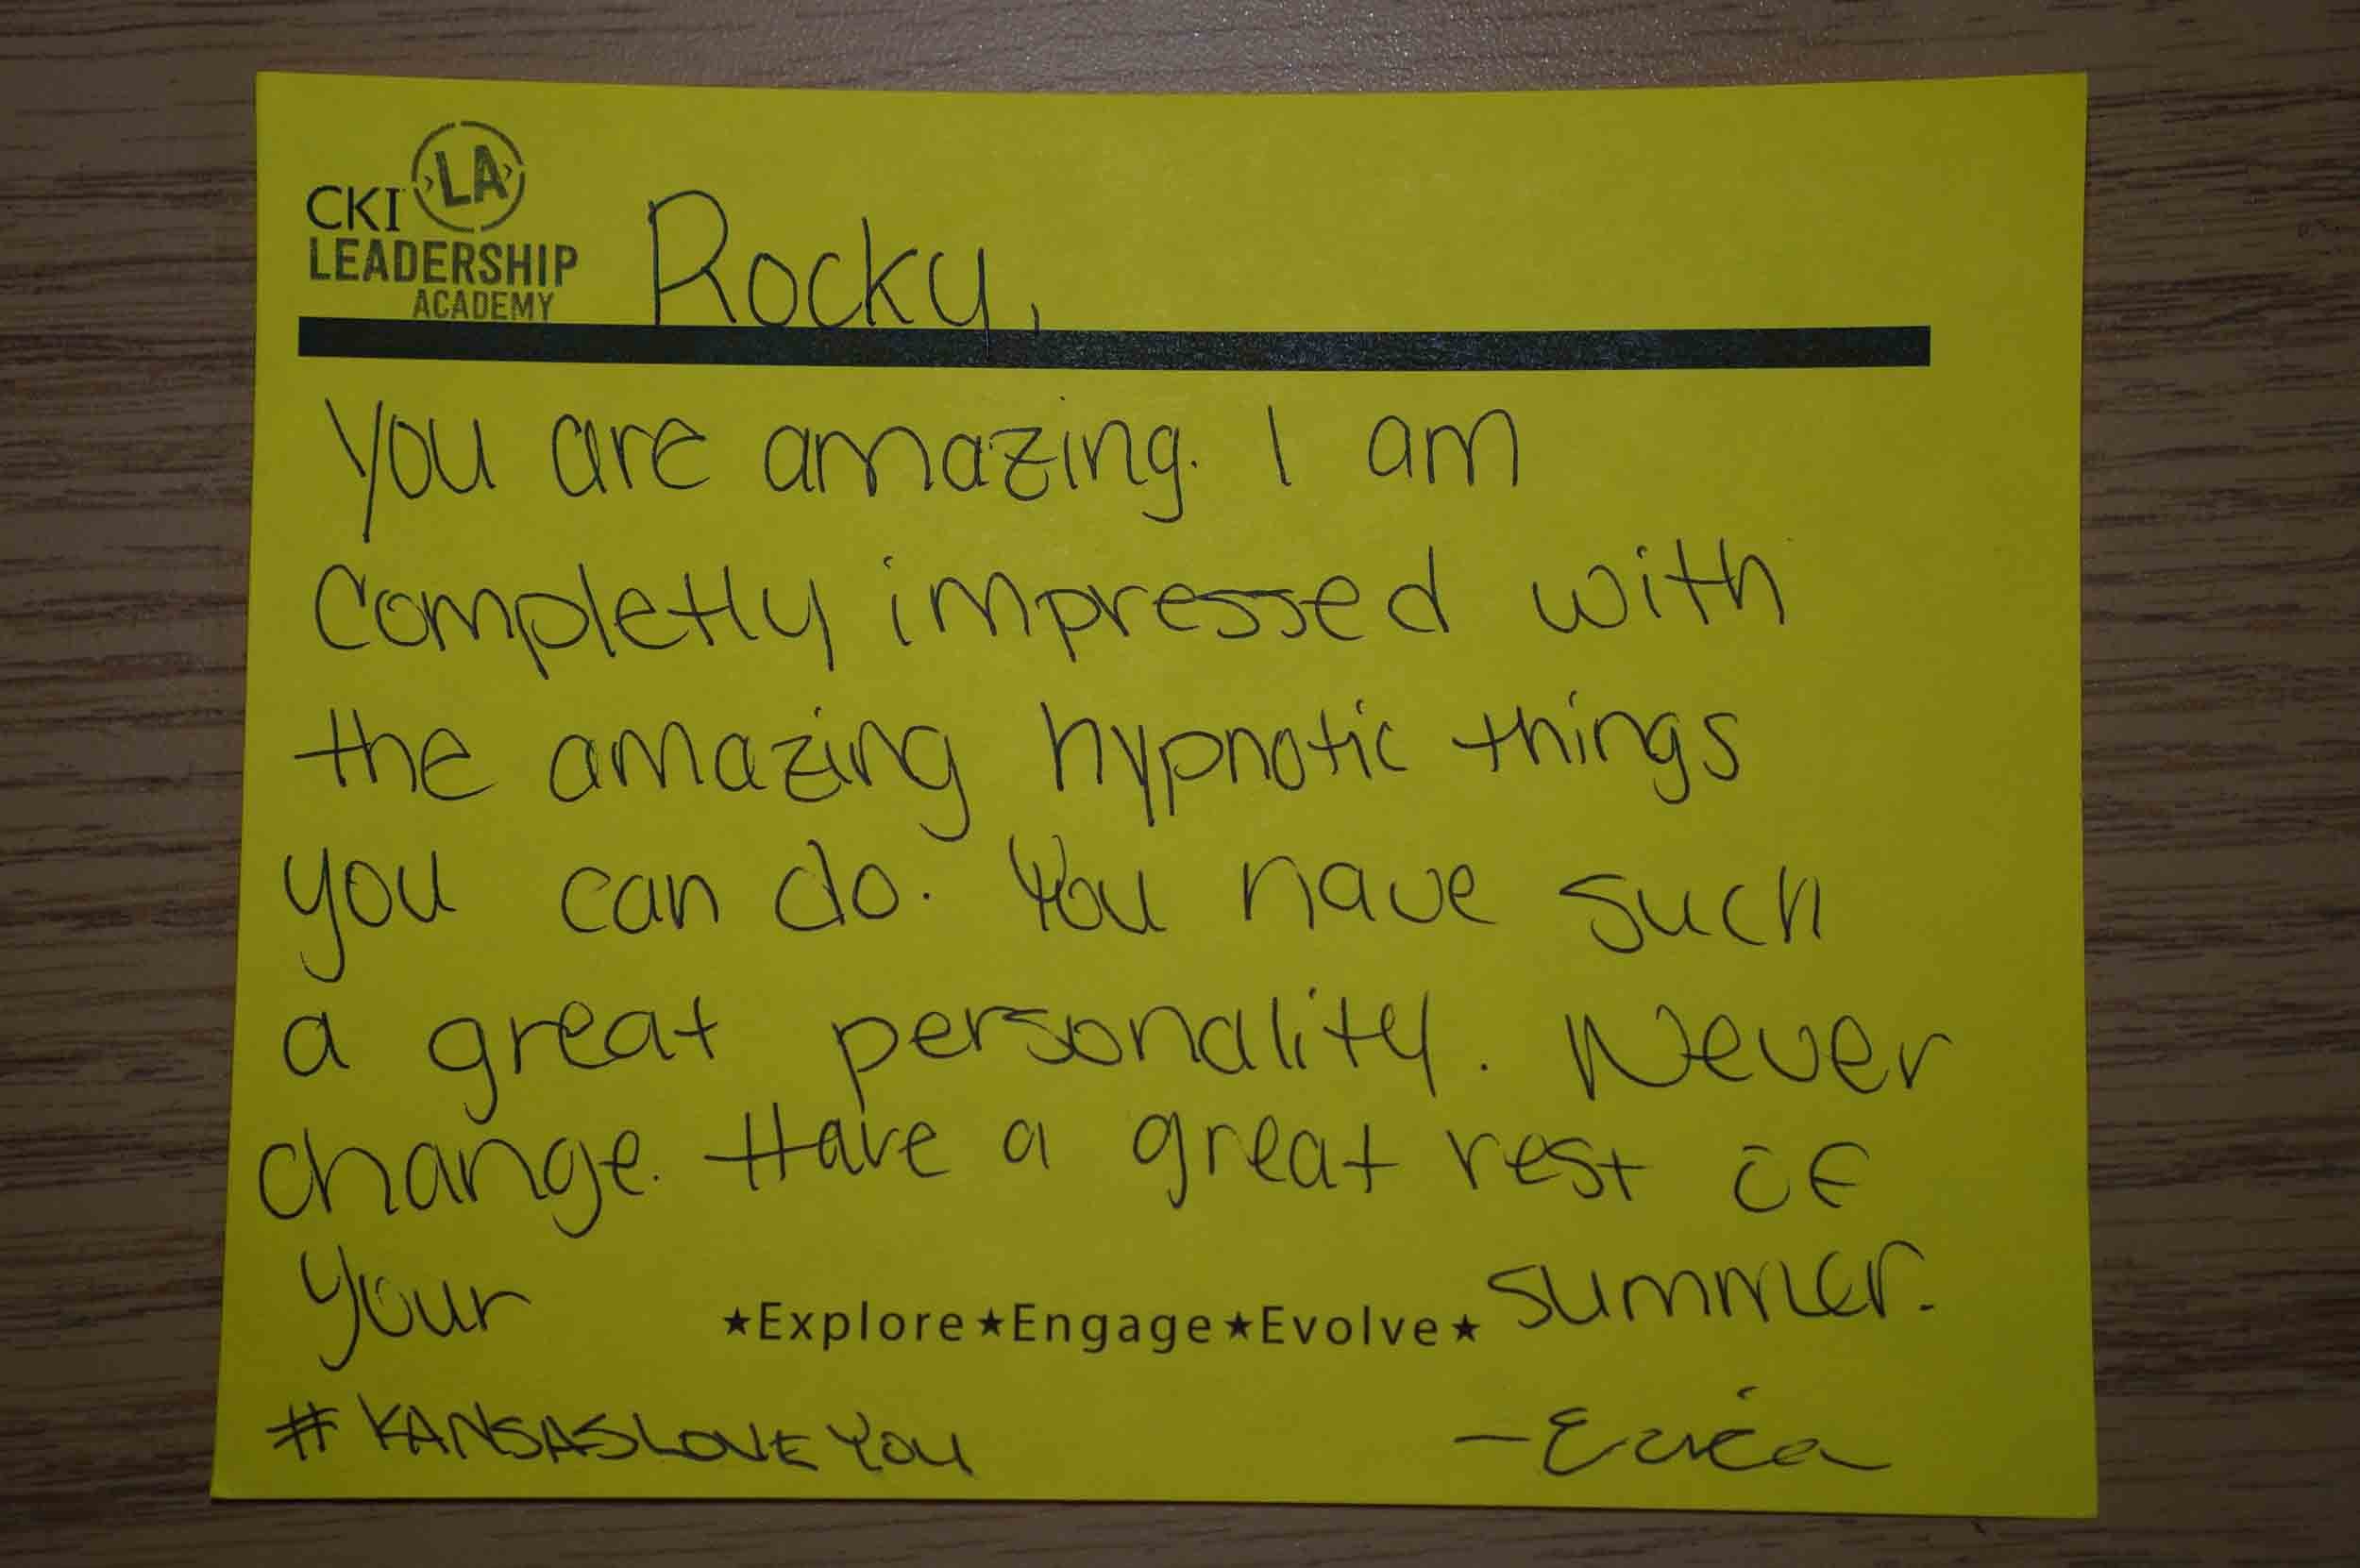 LA
CKI
LEADERSHIP
ACADEMY
Rocky,
You are amazing. I am
completly impressed with
the amazing hypnotic things
you can do. You have such
a great personality. Never
change. Have a great rest of
your summer.
★Explore★Engage★Evolve★
#KANSASLOVEYOU
-Erica